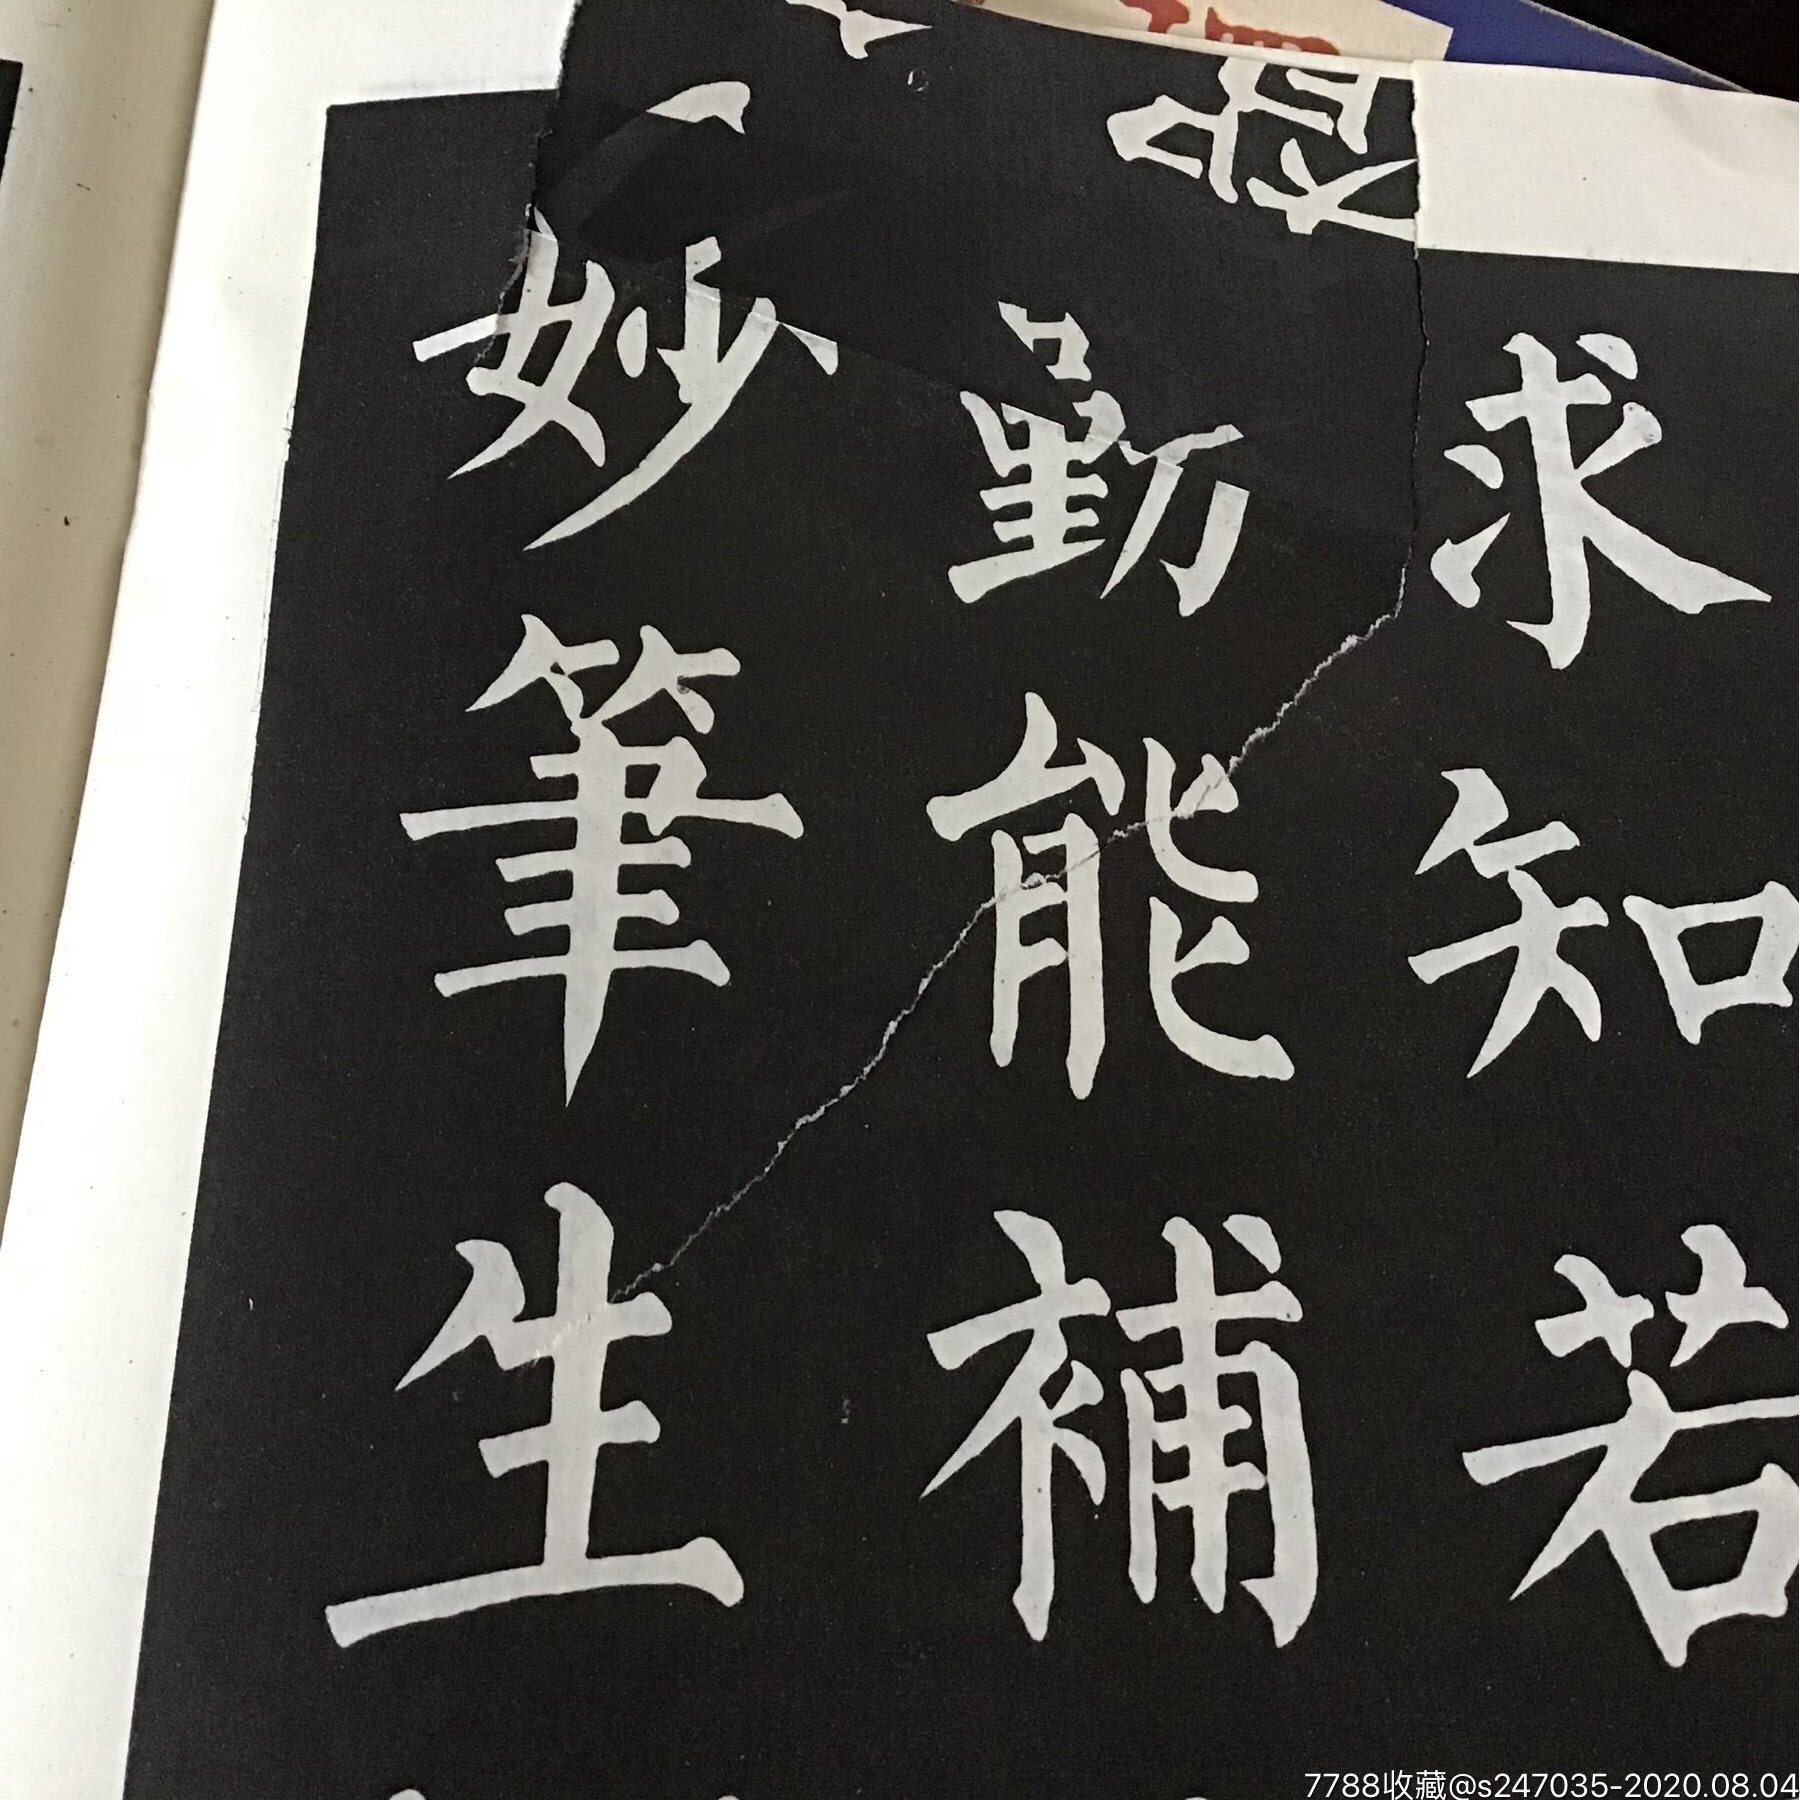 求知若
勤能補
妙筆生
7788收藏@s247035-2020.08.04